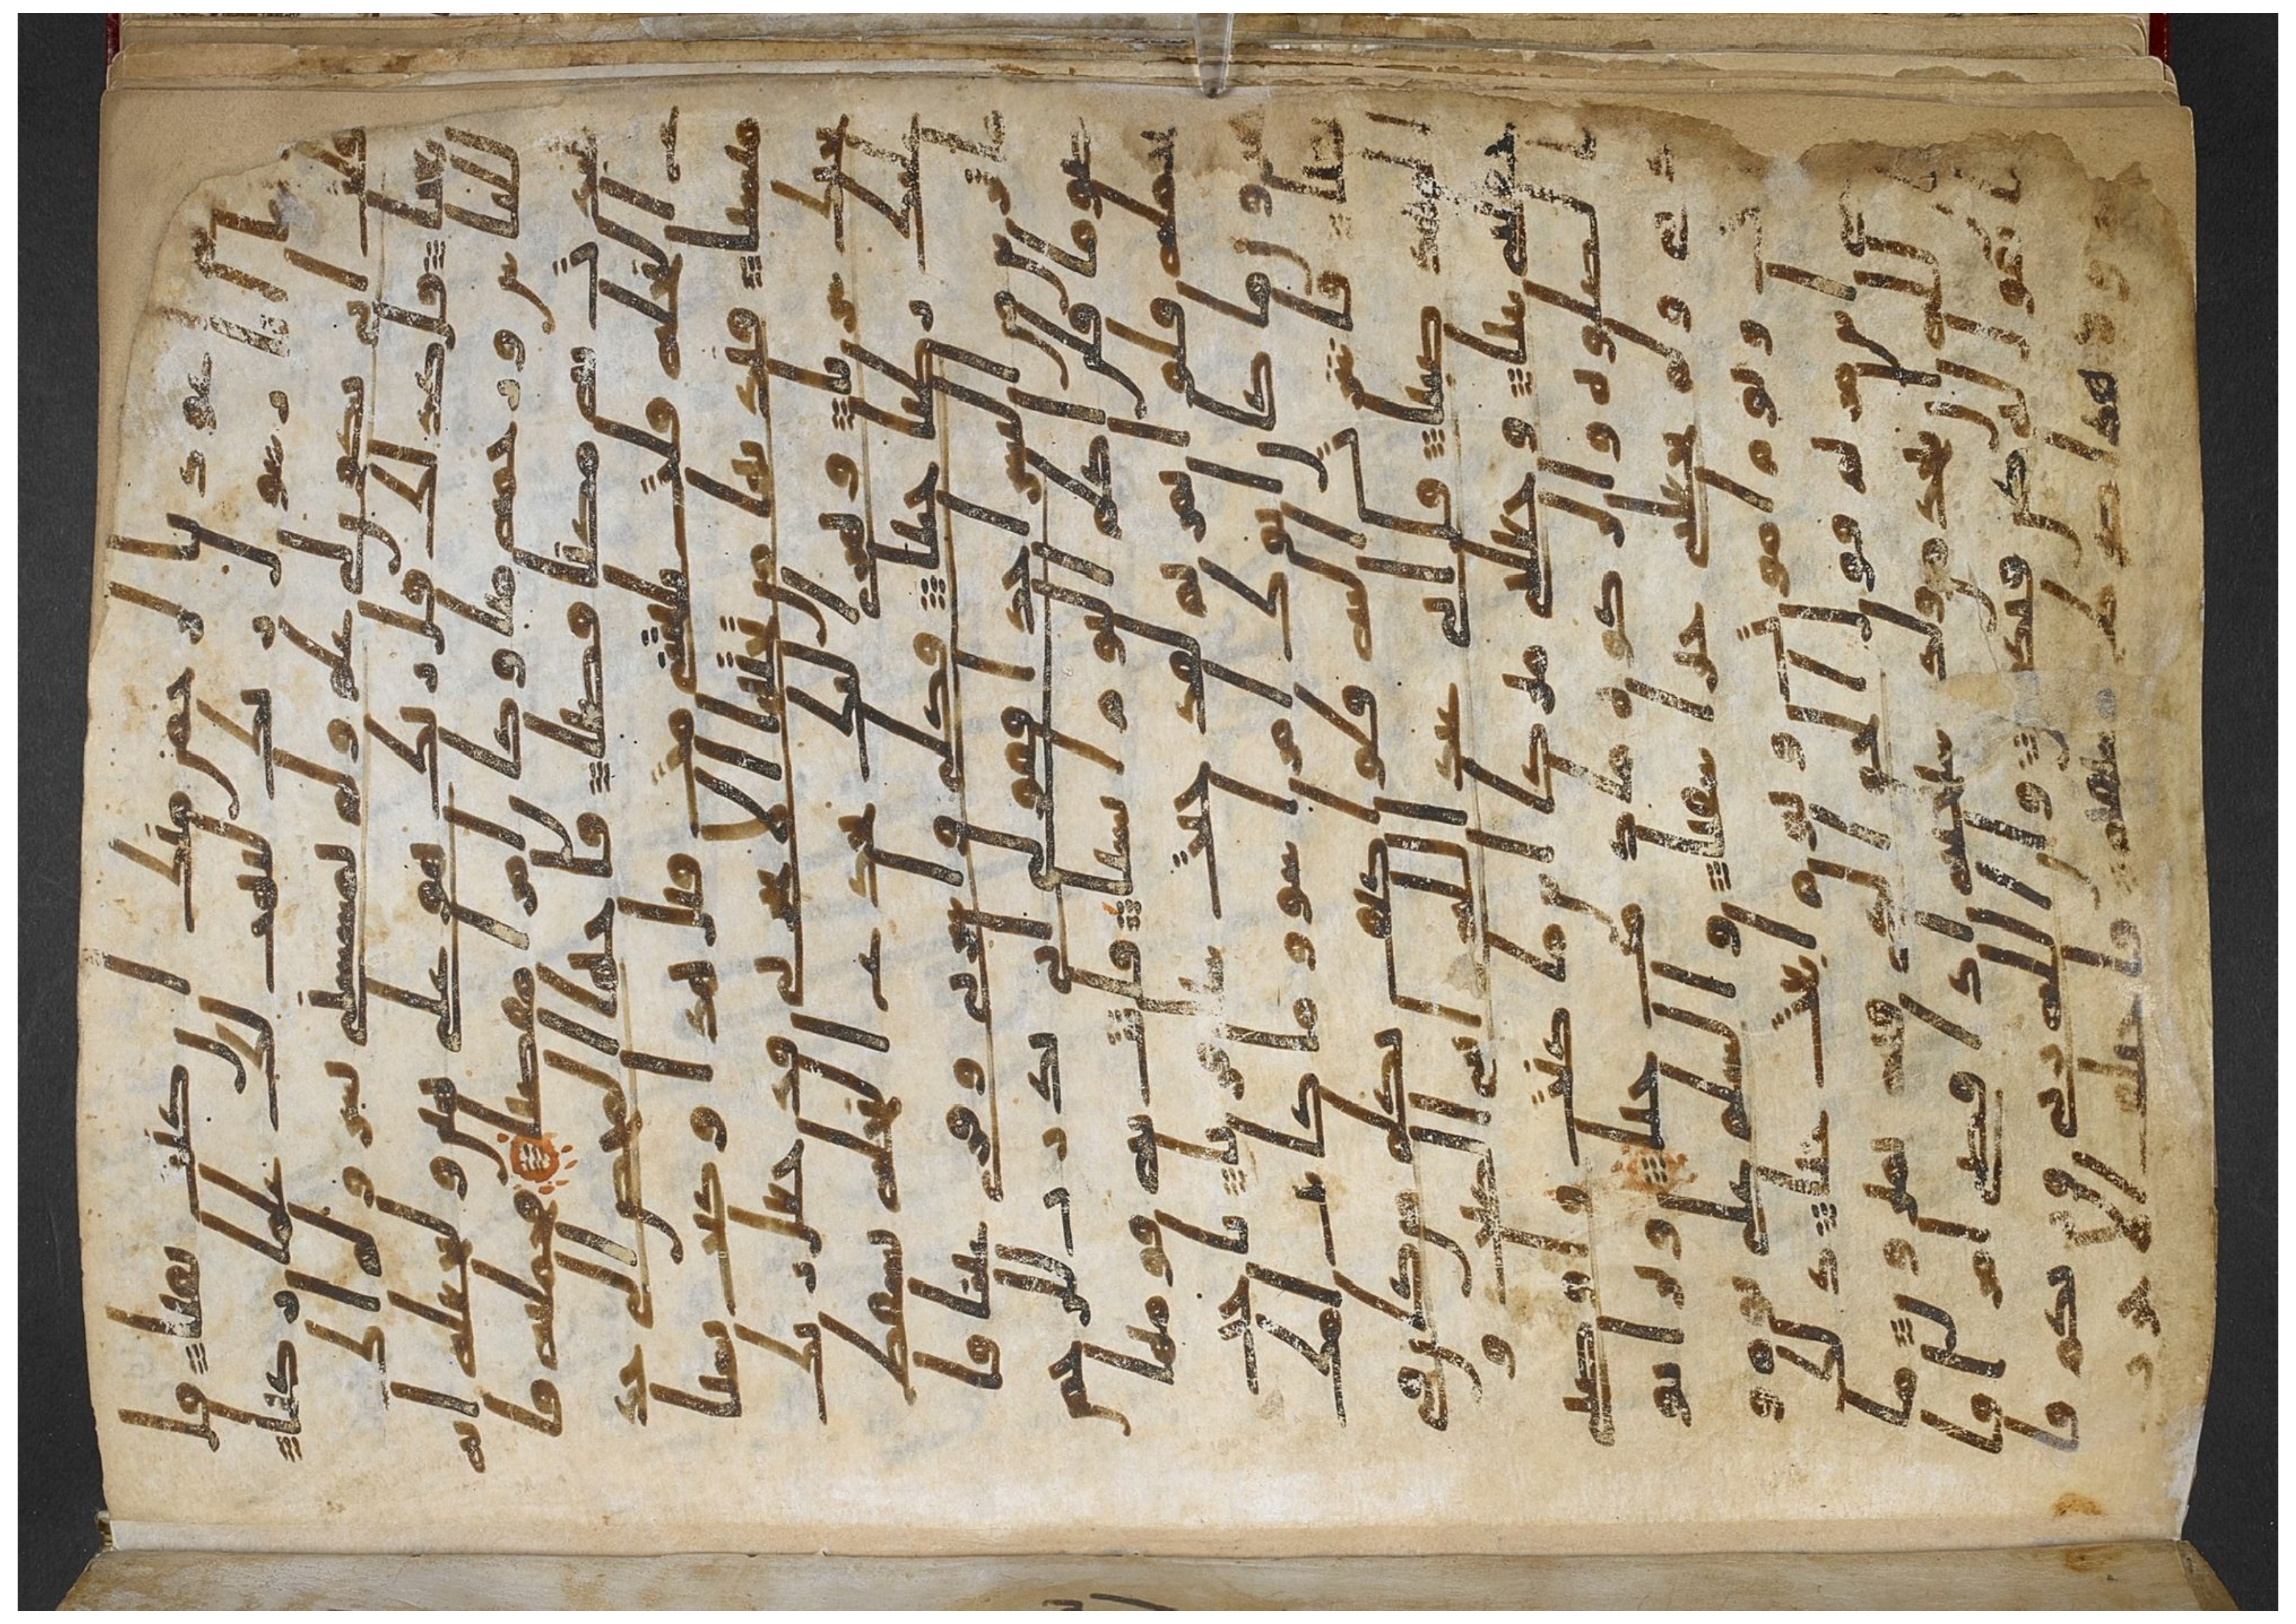 اعوذ بالرحمن منك ان كنت تقيا قل
انما انا رسول ربك لاهب لك غلما زكيا
قلت انى يكون لي غلم و لم يمسسني بشر و لم اك
بغيا قل كذلك قل ربك هو علي هين و لنجعله ا
ية للناس و رحمة منا و كان امرا مقضيا فحملته فا
نتبذت به مكنا قصيا فاجاها المخاض الى جذ
ع النخلة قلت يليتني مت قبل هذا و كنت نسيا
منسيا فنديها من تحتها الا تحزني قد جعل ربك
تحتك سريا و هزي اليك بجذع النخلة تسقط
عليك رطبا جنيا فكلي و اشربي و قري عينا فا
ما ترين من البشر احدا فقولي اني نذرت للر
حمن صوما فلن اكلم اليوم انسيا فاتت به قومها تحم
له قلوا يمريم لقد جئت شيا فريا ياخت
هرون ما كان ابوك امرا سو و ما كانت امك
بغيا فاشارت اليه قلوا كيف نكلم من كان في
المهد صبيا قل اني عبد الله اتني الكتب و
جعلني نبيا و جعلني مبركا اين ما كنت و اوصني
بالصلوة و الزكوة ما دمت حيا و برا بو
لدتي و لم يجعلني جبرا شقيا و السلم علي يو
م ولدت و يوم اموت و يوم ابعث حيا ذلك
عيسى ابن مريم قول الحق الذي فيه يمترون ما
كان لله ان يتخذ من ولد سبحنه اذا قضى امرا فا
نما يقول له كن فيكون و ان الله ربي و ربكم فا
عبدوه هذا صرط مستقيم فاختلف الاحزب